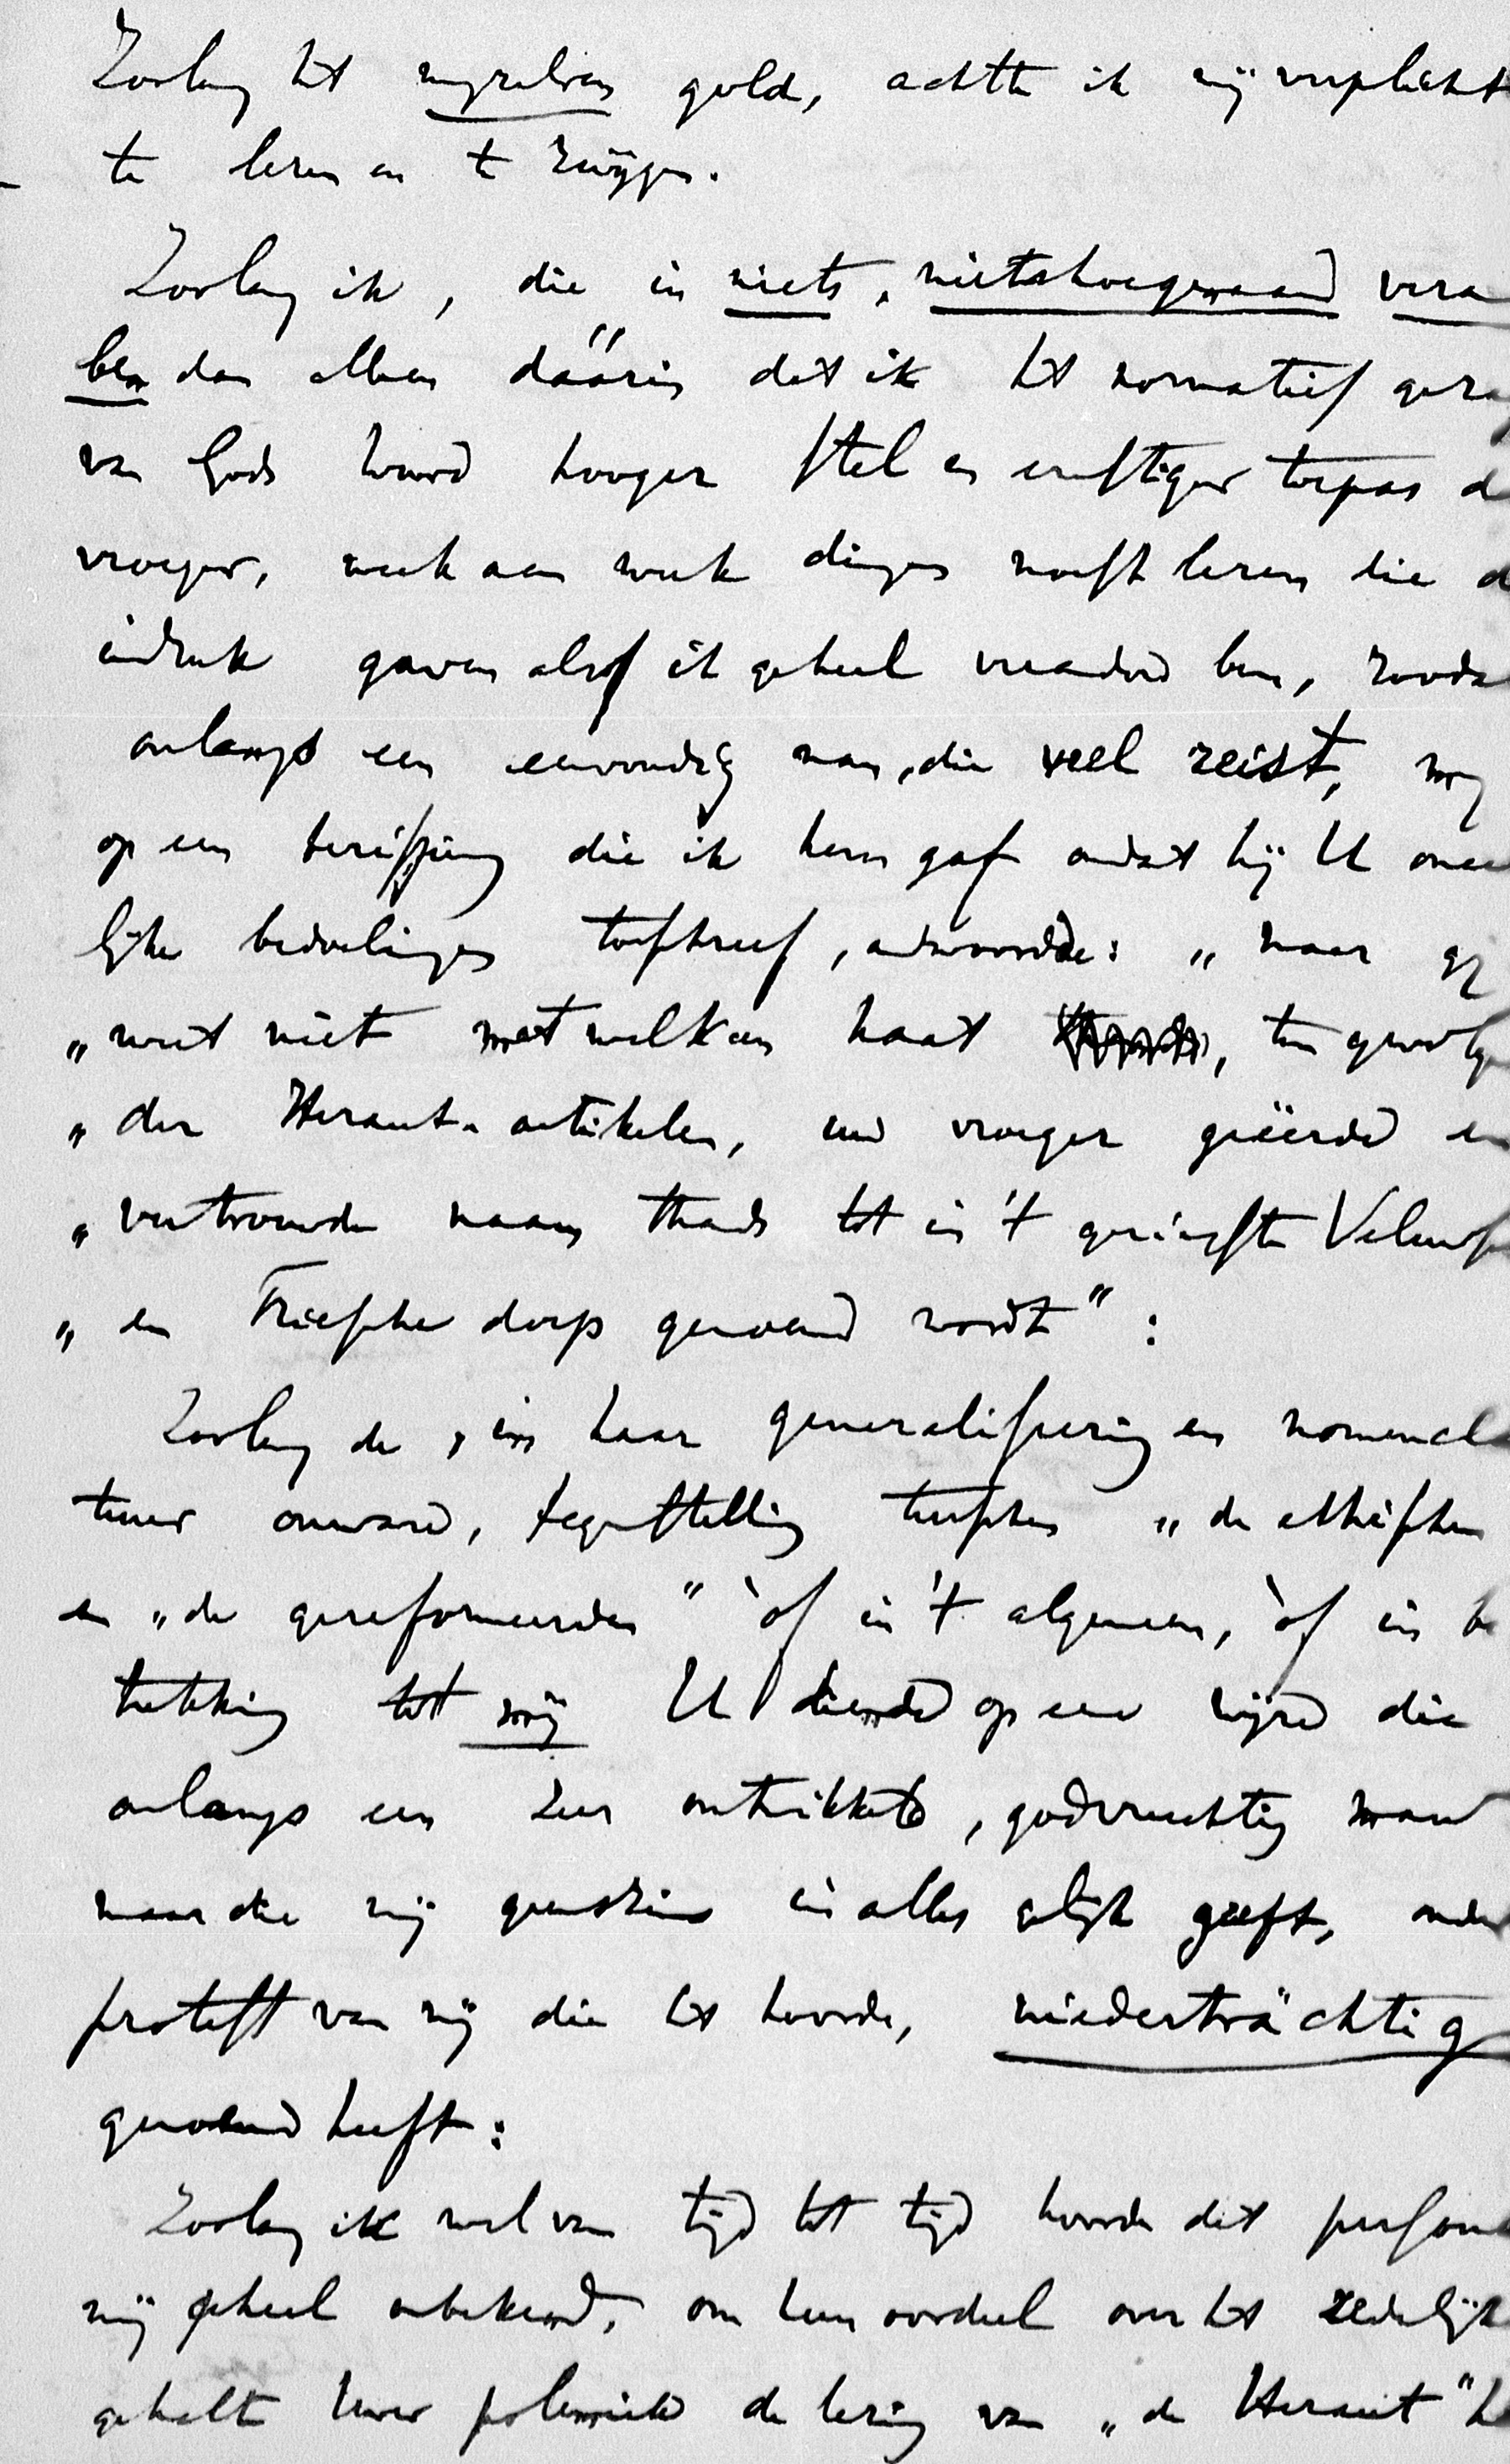 Zoolang het mijzelven gold, achtte ik mij verplicht
te lezen en te zwijgen.
Zoolang ik, die in niets, nietshoegenaamd vera
ben dan alleen däärin dat ik het normatief geza
van Gods Woord hooger stel en ernstiger toepas d
vroeger, week aan week dingen moest lezen die d
indruk gaven alsof ik geheel veranderd ben, zooda
onlangs een eenvoudig man, die veel reist, mij
op een berisping die ik hem gaf omdat hij U onee
lijke bedoelingen toeschreef, antwoordde: „maar gij
„weet niet met welk een haat, ten gevolge
„der Heraut-artikelen, uw vroeger geëerde en
„vertrouwde naam thands tot in 't geringste Veluwsc
„en Friesche dorp genoemd wordt":
Zoolang de, in haar generalisering en nomencla
tuur onware, tegenstelling tusschen „de ethischen
en „de gereformeerden" òf in 't algemeen, òf in be
trekking tot mij U diende op eene wijze die
onlangs een zeer ontwikkeld, godvruchtig man
maar die mij geenszins in alles gelijk geeft, onder
protest van mij die het hoorde, niederträchtig
genoemd heeft:
Zoolang ik wel van tijd tot tijd hoorde dat person
mij geheel onbekend, om hun oordeel over het zedelijk
gehalte Uwer polemiek de lezing van „de Heraut" h